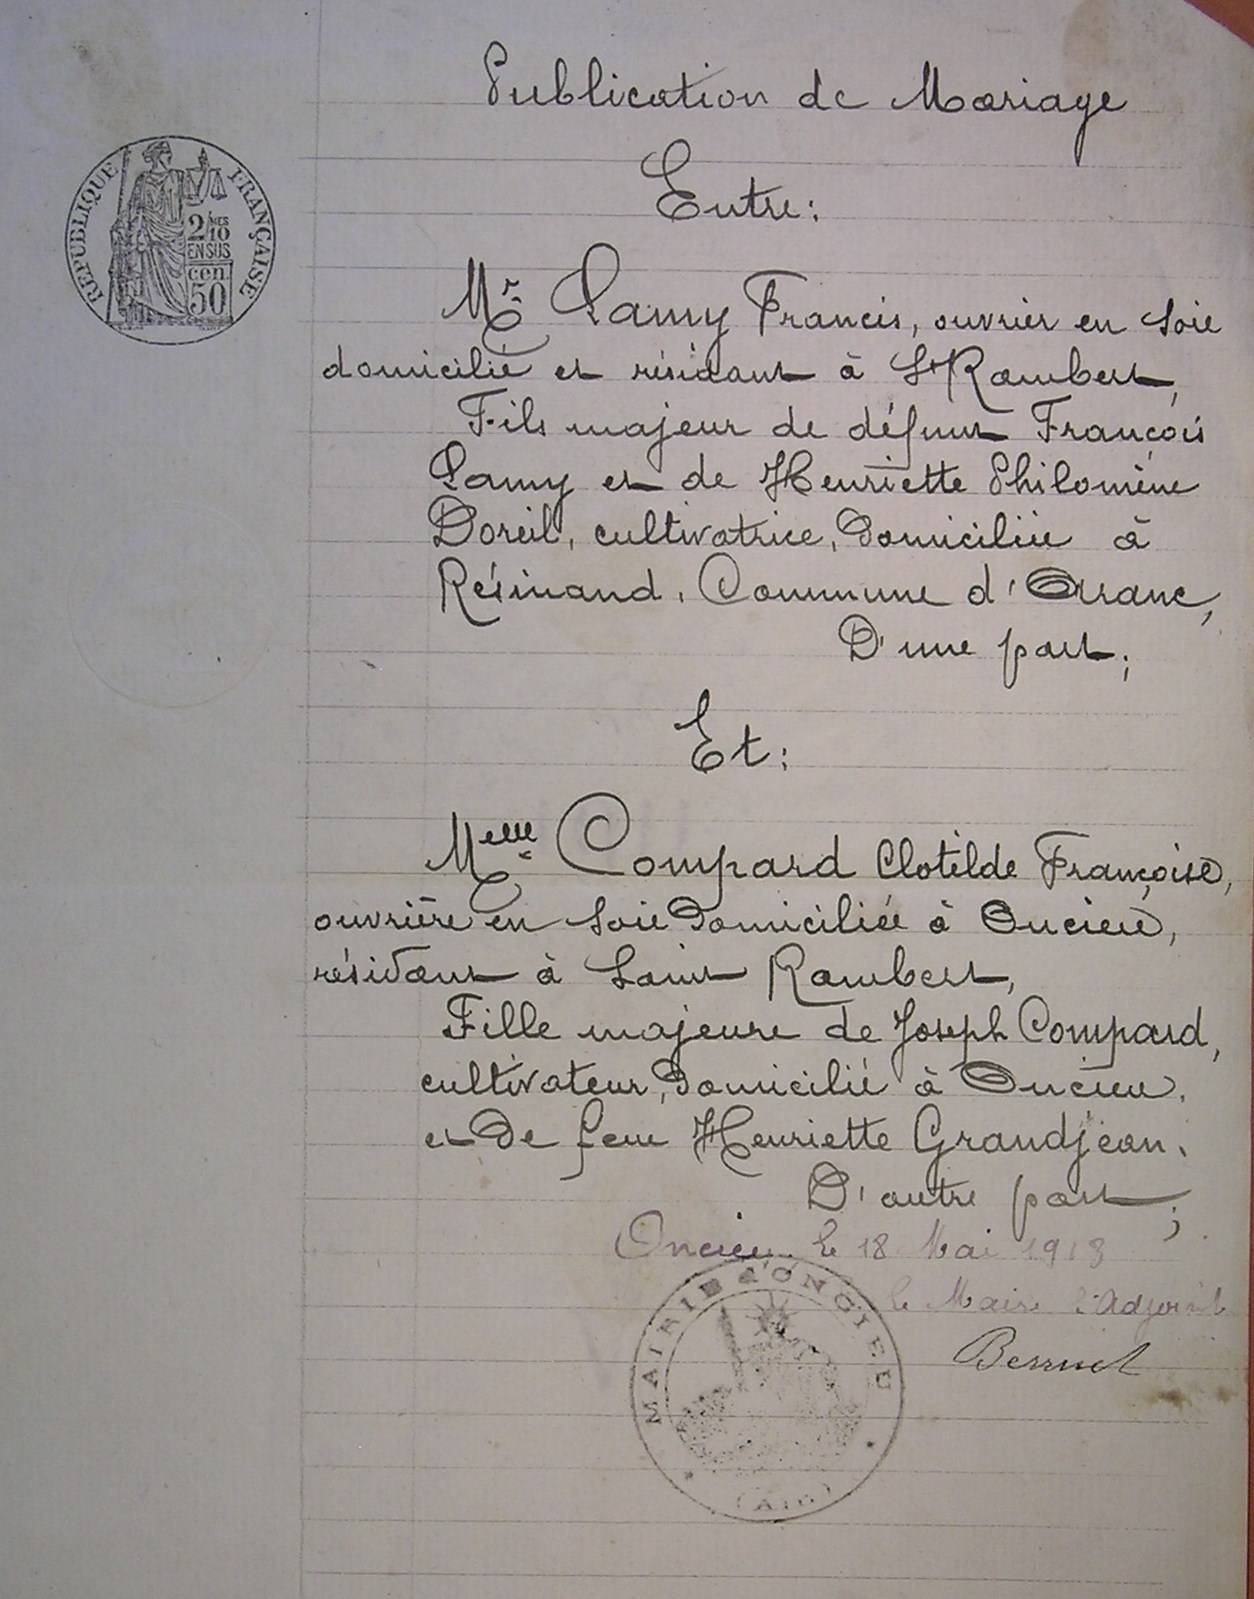 Publication de Mariage
Entre:
REPUBLIQUE FRANÇAISE
2/MES 10
EN SUS
cen.
50
Mr Lamy Francis, ouvrier en soie
domicilié et résidant à St Rambert,
Fils majeur de défunt François
Lamy et de Henriette Philomène
Doreil, cultivatrice, domiciliée à
Résinand, Commune d'Arranc,
D'une part;
Et:
Melle Compard Clotilde Françoise,
ouvrière en soie domiciliée à Oncieu,
résidant à Saint Rambert,
Fille majeure de Joseph Compard,
cultivateur, domicilié à Oncieu,
et de feue Henriette Grandjean.
D'autre part;
Oncieu le 18 Mai 1913
le Maire l'Adjoint
MAIRIE D'ONCIEU
(AIN)